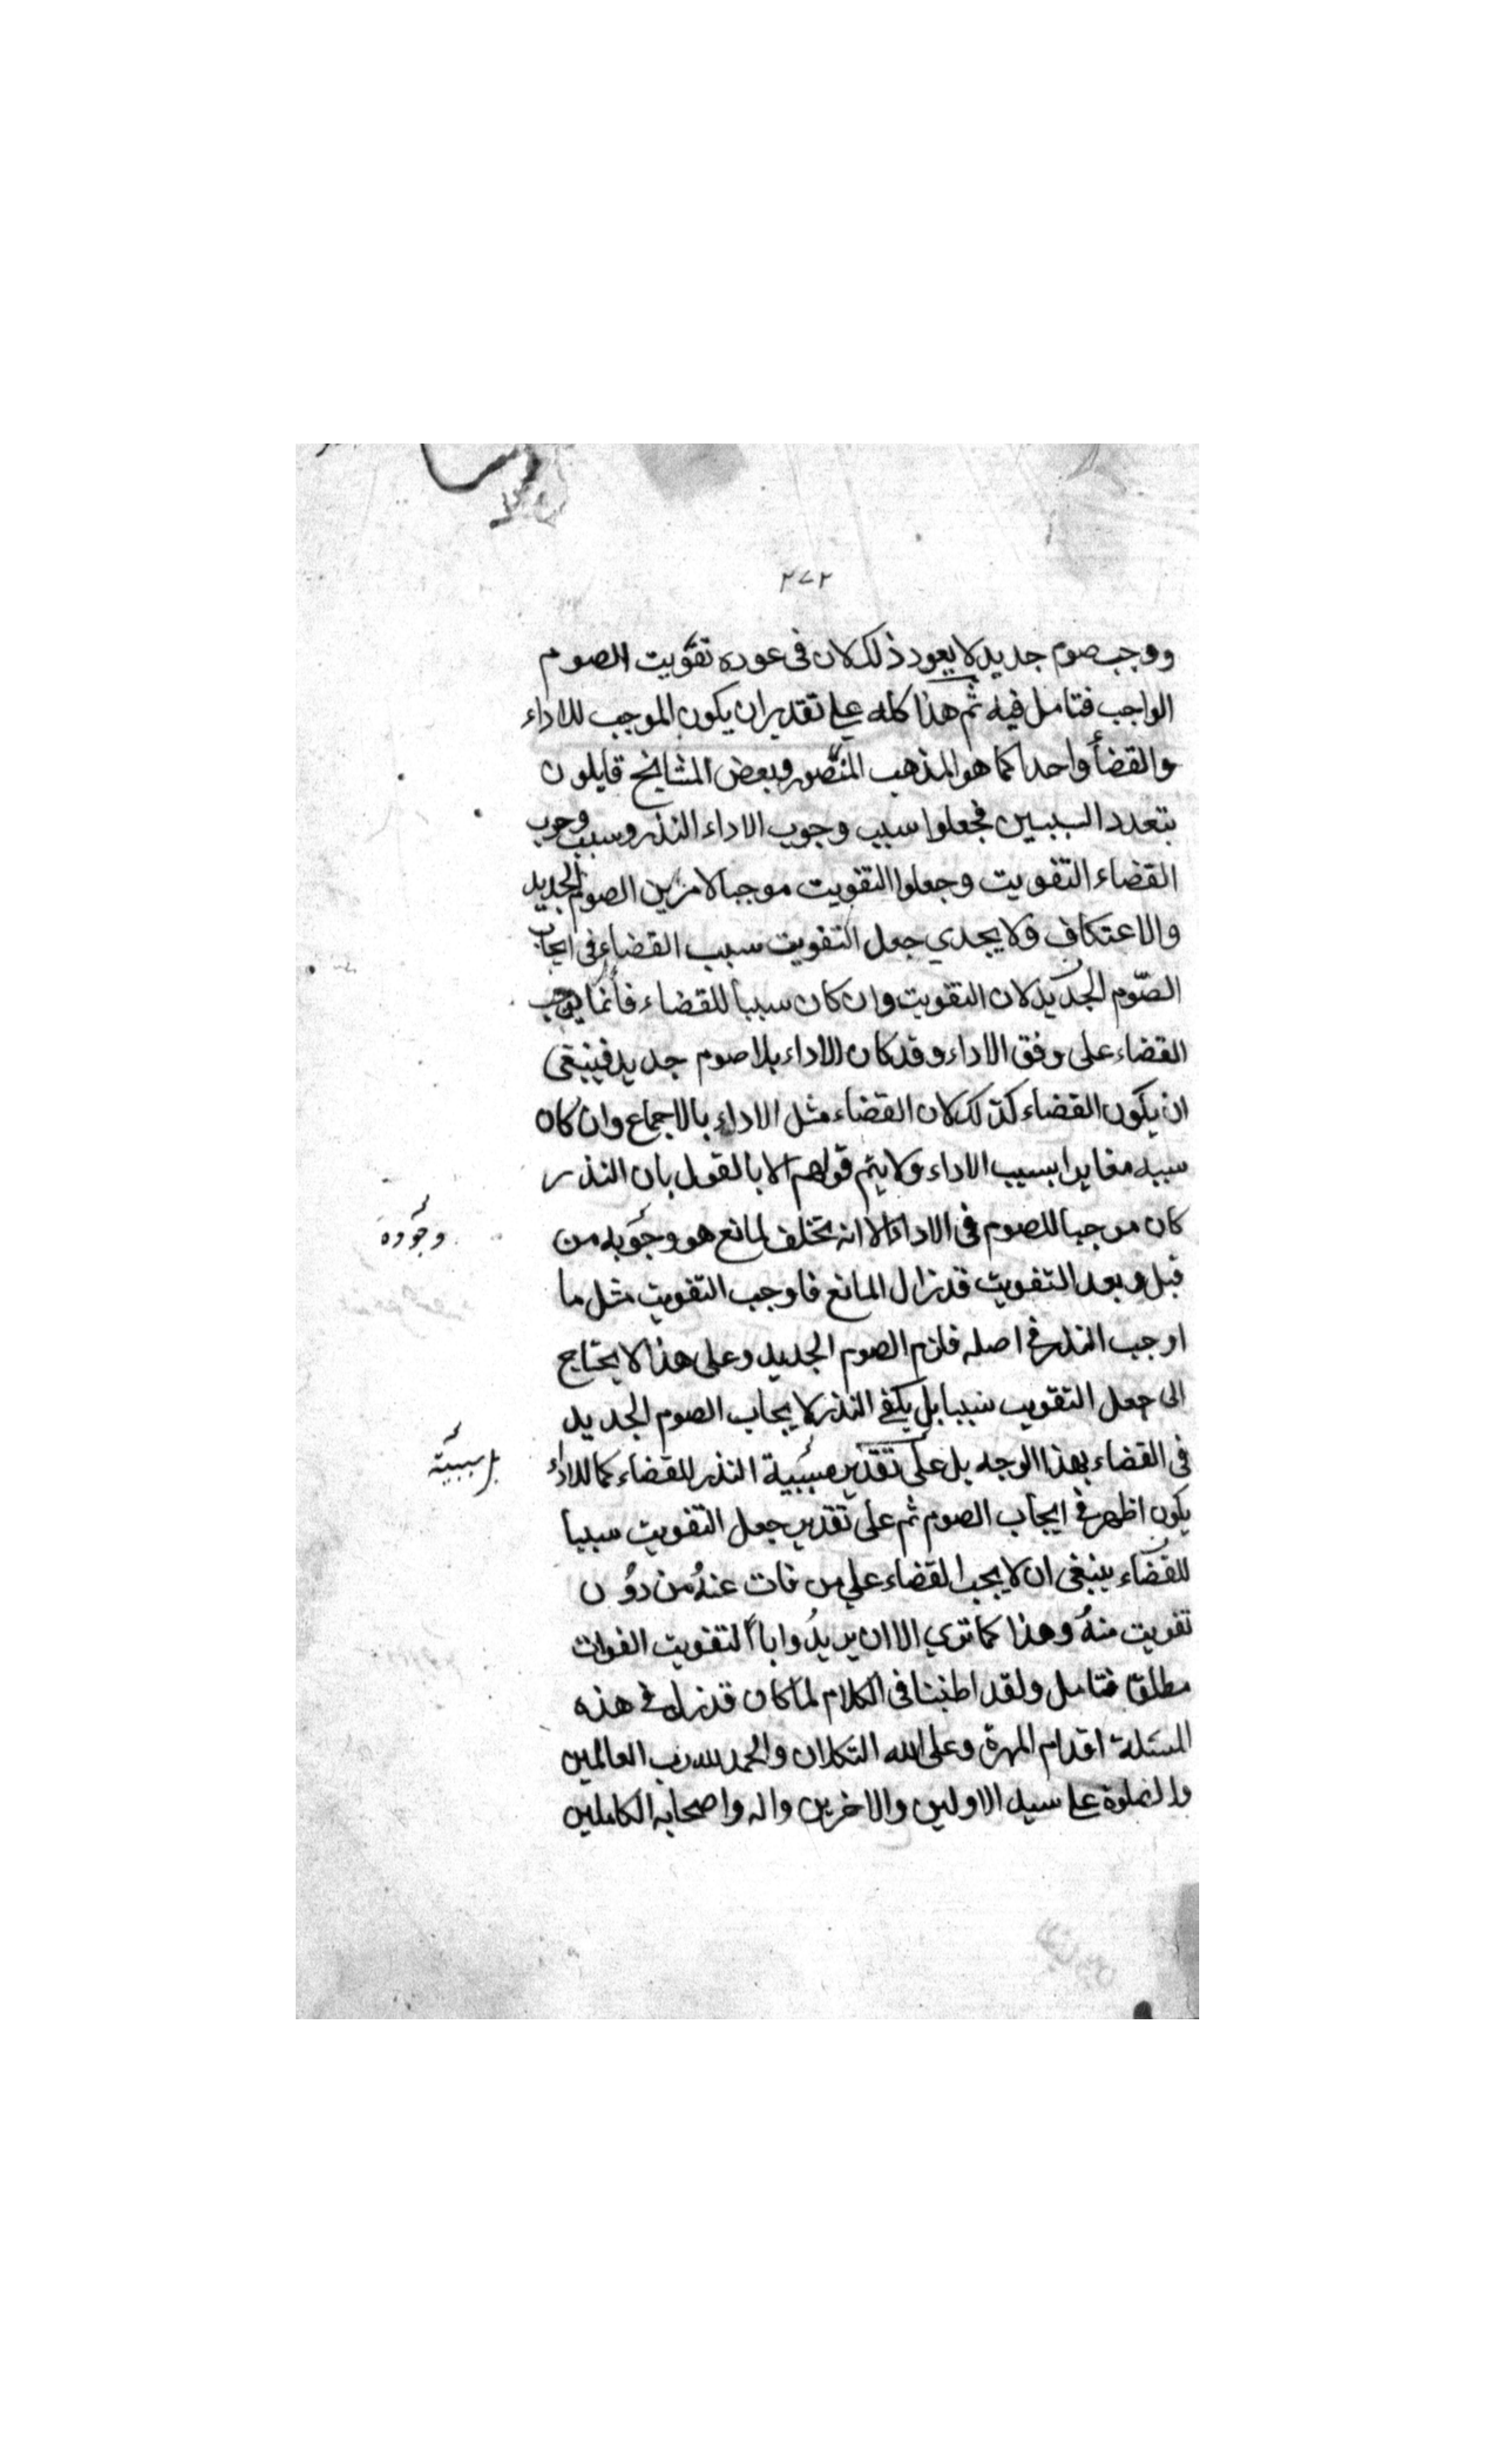 ٢٧٢
ووجب صوم جديد لا يعود ذلك لان فى عوده تفويت الصوم
الواجب فتامل فيه ثم هذا كله على تقدير ان يكون الموجب للاداء
والقضأ واحدا كما هو المذهب المنصور وبعض المشايخ قايلون
بتعدد السببين فجعلوا سبب وجوب الاداء النذر وسبب وجوب
القضاء التفويت وجعلوا التفويت موجبا لامرين الصوم الجديد
والاعتكاف ولا يجدي جعل التفويت سبب القضاء فى ايجاب
الصّوم الجديد لان التفويت وان كان سببا للقضاء فانما يوجب
القضاء على وفق الاداء وقد كان الاداء بلا صوم جديد فينبغى
ان يكون القضاء كذلك لان القضاء مثل الاداء بالاجماع وان كان
سببه مغايرا بسبب الاداء ولا يتم قولهم الا بالقول بان النذر
كان موجبا للصوم فى الاداء الا انه تخلف لمانع هو وجوبه من
وجوده
قبل وبعد التفويت قد زال المانع فاوجب التفويت مثل ما
اوجب النذر فى اصله فلزم الصوم الجديد وعلى هذا لا يحتاج
الى جعل التفويت سببا بل يكفى النذر لايجاب الصوم الجديد
فى القضاء بهذا الوجه بل على تقدير مسببية النذر للقضاء كما للاداء
سببية
يكون اظهر فى ايجاب الصوم ثم على تقدير جعل التفويت سببا
للقضاء ينبغى ان لا يجب القضاء على من فات عنهُ من دوُن
تفويت منهُ وهذا كما تري الا ان يريدُوا بالتفويت الفوات
مطلقا فتامل ولقد اطنبنا فى الكلام لما كان قد زل فى هذه
المسئلة اقدام المهرة وعلى الله التكلان والحمد لله رب العالمين
والصلوة على سيد الاولين والاخرين واله واصحابه الكاملين